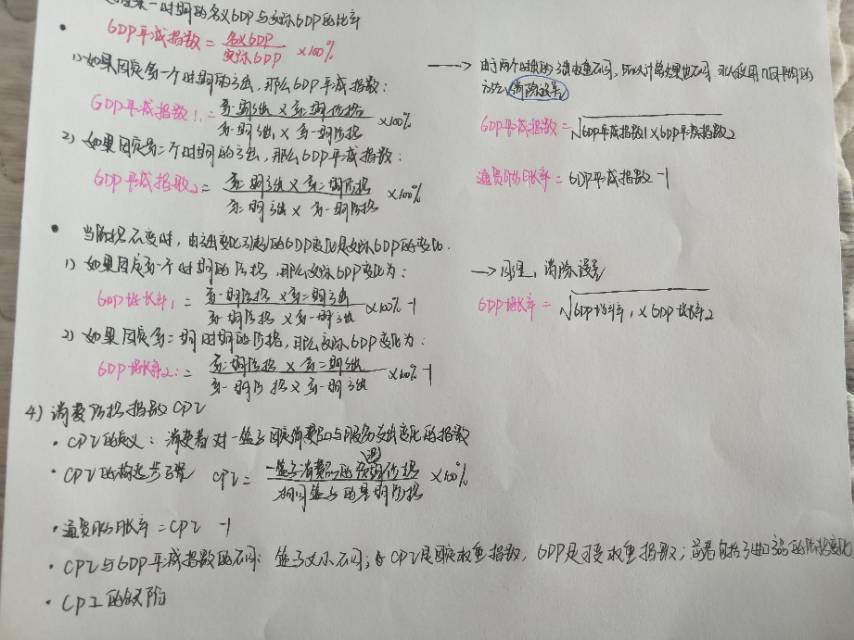 一时期的名义GDP与实际GDP的比率
• GDP平减指数 = 名义GDP / 实际GDP ×100%
1) 如果固定第一个时期的产出,那么GDP平减指数:
GDP平减指数1 = 第一期产出 × 第二期价格 / 第一期产出 × 第一期价格 ×100%
→ 由于两个时期的产出基础不同,所以计算结果也不同 可以使用几何平均的
方法 消除误差
GDP平减指数 = √GDP平减指数1 × GDP平减指数2
2) 如果固定第二个时期的产出,那么GDP平减指数:
GDP平减指数2 = 第二期产出 × 第二期价格 / 第二期产出 × 第一期价格 ×100%
通货膨胀率 = GDP平减指数 -1
• 当价格不变时,由产出变化引起的GDP变化是实际GDP的变化.
1) 如果固定第一个时期的价格,那么实际GDP变化为:
GDP增长率1 = 第一期价格 × 第二期产出 / 第一期价格 × 第一期产出 ×100% -1
→ 同理,消除误差
GDP增长率 = √GDP增长率1 × GDP增长率2
2) 如果固定第二期时期的价格,那么实际GDP变化为:
GDP增长率2: = 第二期价格 × 第二期产出 / 第二期价格 × 第一期产出 ×100% -1
4) 消费价格指数CPI
• CPI的定义: 消费者对一篮子固定消费品与服务支出变化的指数
• CPI的构造步骤 CPI = 一篮子消费品的现期价格 / 相同篮子的基期价格 ×100%
• 通货膨胀率 = CPI -1
• CPI与GDP平减指数的不同: 篮子大小不同; CPI是固定权重指数, GDP是可变权重指数; 前者包括了进口品的价格变化
• CPI的缺陷